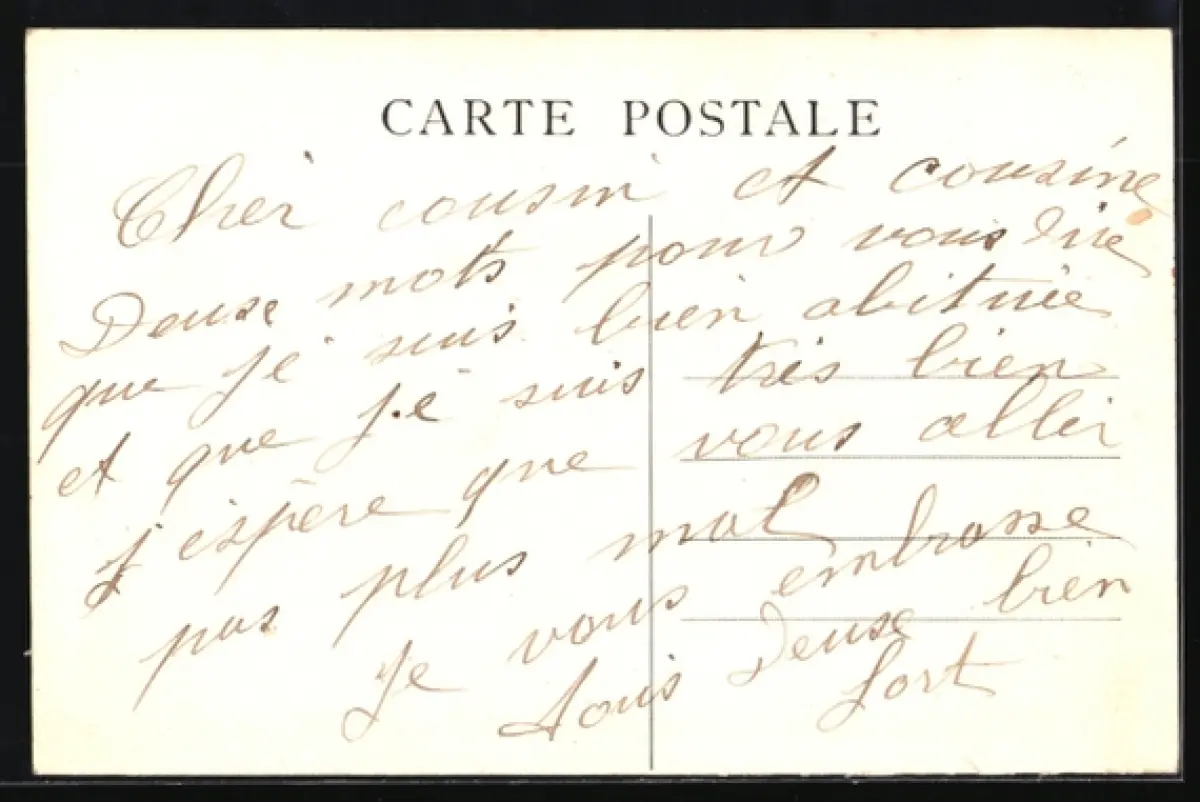 CARTE POSTALE
Cher cousin et cousine
Deuse mots pour vous dire
que je suis bien abituée
et que je suis très bien
j'espère que vous aller
pas plus mal
je vous embrasse
tous deuse bien
fort